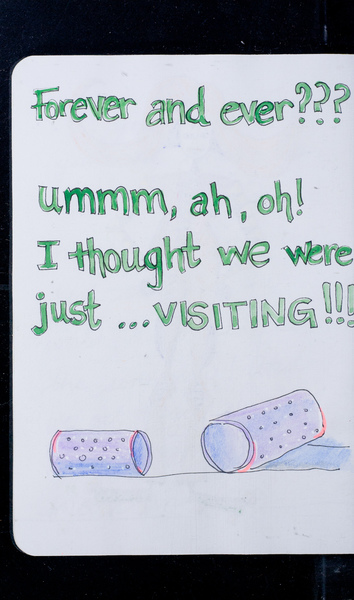 Forever and ever???
ummm, ah, oh!
I thought we were
just ... VISITING!!!